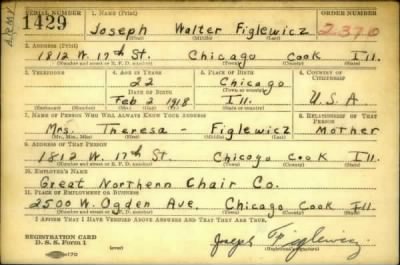 SERIAL NUMBER 1. NAME (Print) ORDER NUMBER
1429 Joseph Walter Figlewicz 2370
ARMY
(First) (Middle) (Last)
2. ADDRESS (Print)
1812 W. 17th St. Chicago Cook Ill.
(Number and street or R. F. D. number) (Town) (County) (State)
3. TELEPHONE 4. AGE IN YEARS 5. PLACE OF BIRTH 6. COUNTRY OF CITIZENSHIP
22 Chicago
DATE OF BIRTH (Town or county)
Feb 2 1918 Ill. U.S.A
(Exchange) (No.) (Mo.) (Day) (Yr.) (State or country)
7. NAME OF PERSON WHO WILL ALWAYS KNOW YOUR ADDRESS 8. RELATIONSHIP OF THAT PERSON
Mrs. Theresa - Figlewicz Mother
(Mr., Mrs., Miss) (First) (Middle) (Last)
9. ADDRESS OF THAT PERSON
1812 W. 17th St. Chicago Cook Ill.
(Number and street or R. F. D. number) (Town) (County) (State)
10. EMPLOYER'S NAME
Great Northern Chair Co.
11. PLACE OF EMPLOYMENT OR BUSINESS
2500 W. Ogden Ave. Chicago Cook Ill.
(Number and street or R. F. D. number) (Town) (County) (State)
I AFFIRM THAT I HAVE VERIFIED ABOVE ANSWERS AND THAT THEY ARE TRUE.
REGISTRATION CARD
D. S. S. Form 1 Joseph Figlewicz
(Registrant's signature)